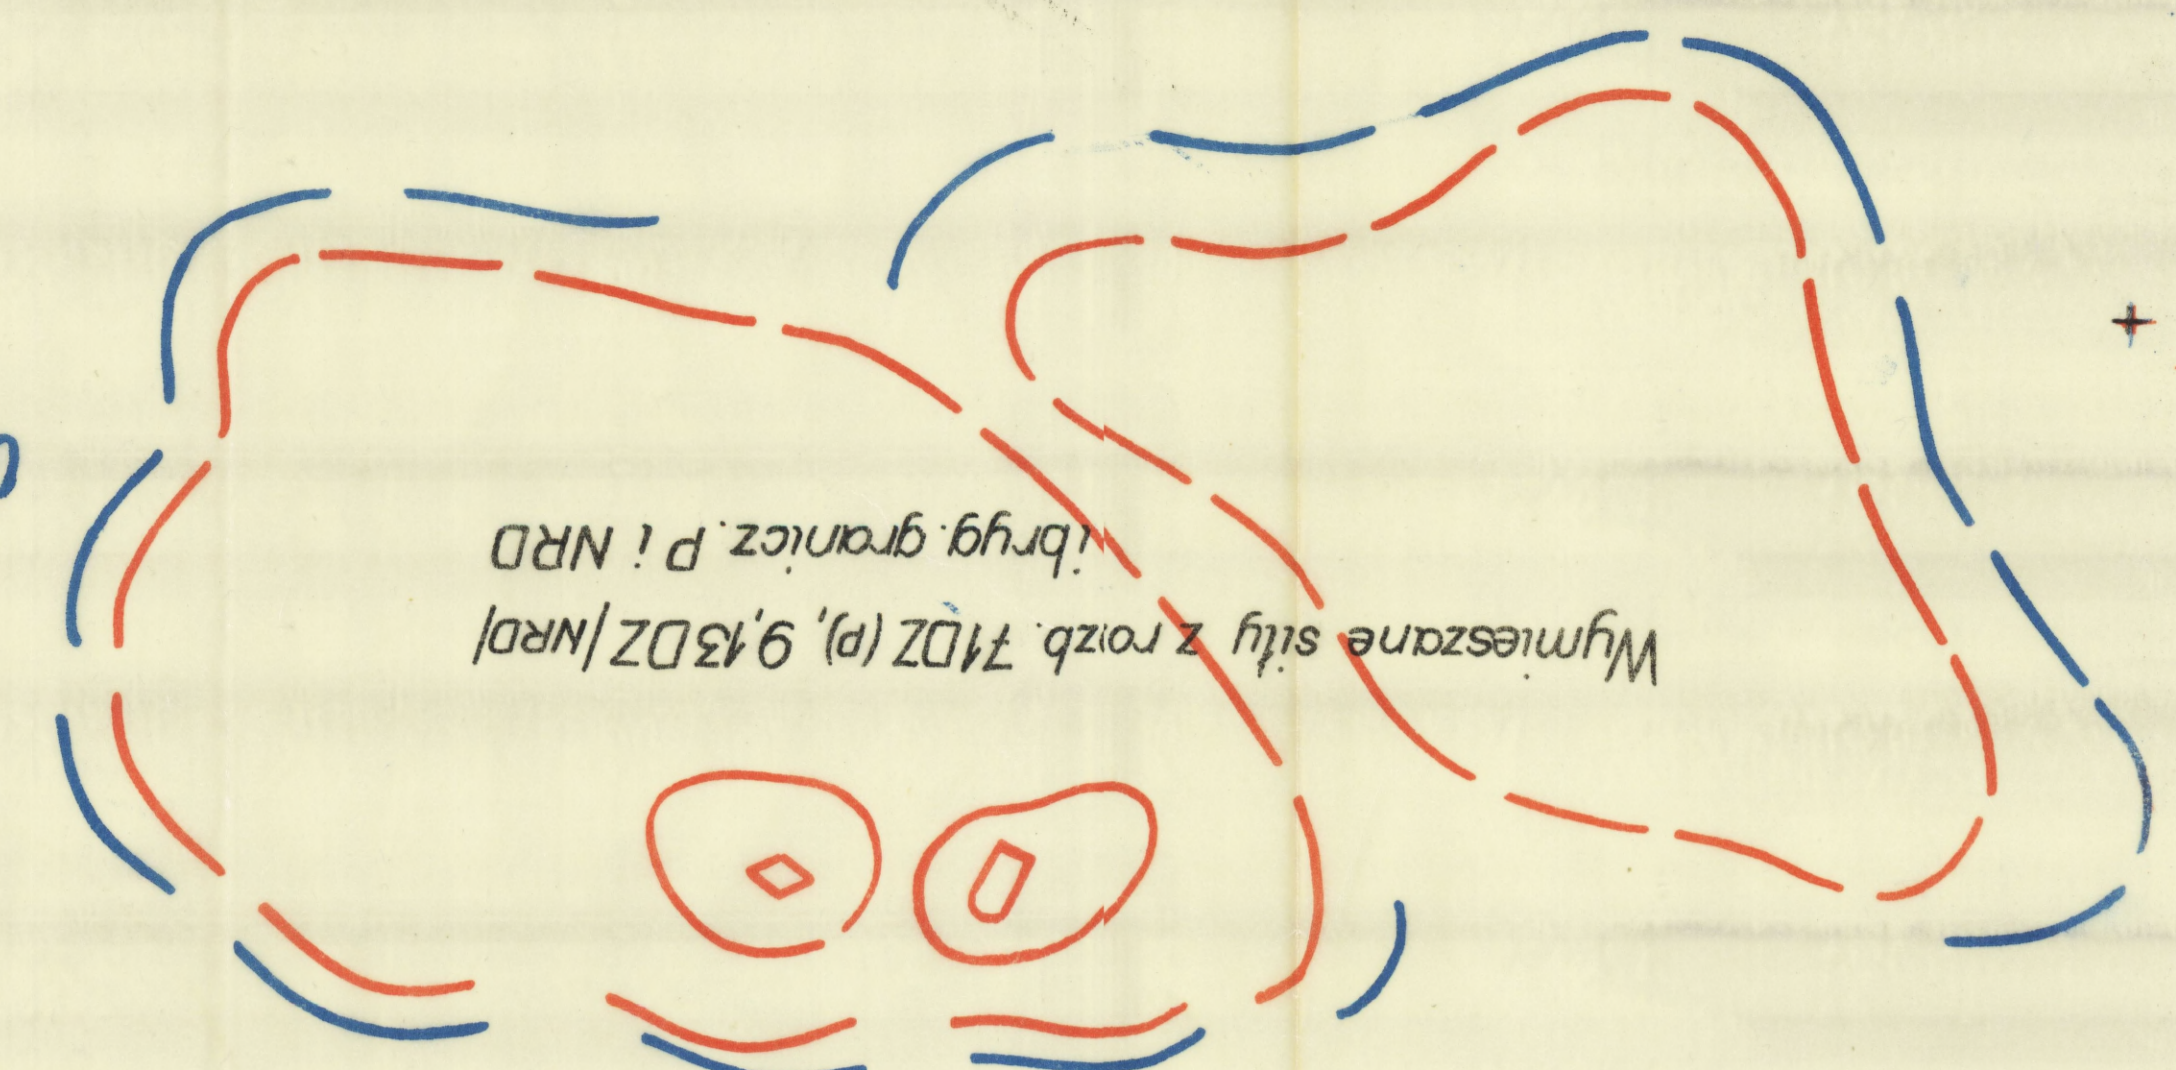 Wymieszane siły z rozb. 71DZ (P), 9,13 DZ /NRD/
i bryg. granicz. P i NRD